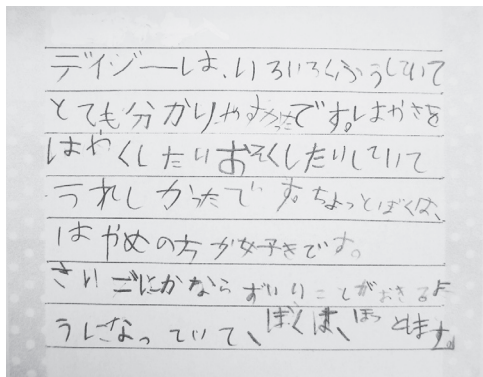 デイジーは、いろいろくふうしていて
とても分かりやすかったです。はやさを
はやくしたりおそくしたりしていて
うれしかったです。ちょっとぼくは、
はやめの方が好きです。
さいごにかならずいいことがおきるよ
うになっていて、ぼくは、ほっとします。